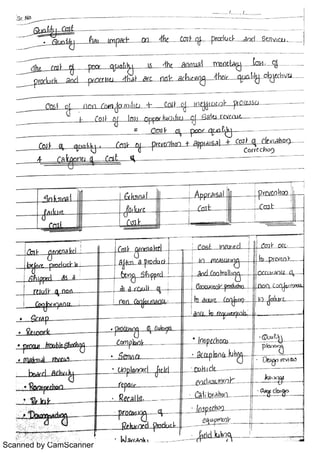 Sr. No.
Quality Cost
• Quality has impact on the cost of product and services.
The cost of poor quality is the annual monetary loss of
products and processes that are not achieving their quality objectives
Cost of non conformities + Cost of inefficient processes
+ Cost of loss opportunities of sales revenue
= Cost of poor quality
Cost of quality = Cost of prevention + appraisal + cost of deviation
correction
4 Categories of Cost
Internal failure Cost
External failure Cost
Appraisal Cost
Prevention Cost
Cost generated before product is shipped as a result of non Conformance
• Scrap
• Rework
• process trouble shooting
• material review board activity
• Reinspection
• Re test
• Downgrading
Cost generated after a product being shipped as a result of non conformance
• processing of complaint
• Service
• unplanned field repair
• Recalls
• processing of Returned product
• Warranty
Cost incurred in measuring and controlling production to assure conformance to requirements
• Inspection
• acceptance testing
• outside endorsement
• Calibration
• Inspection equipment
• field testing
Cost are to prevent occurance of non conformance to failure
• Quality planning
• Design
• training
Scanned by CamScanner